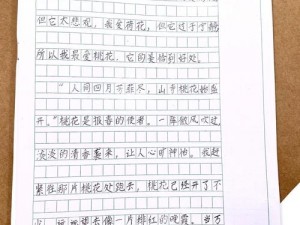 但它太悲观，我爱荷花，但它过于了
所以我最爱桃花，它的美恰到好处。
“人间四月芳菲尽，山寺桃花始盛
开。”桃花是报春的使者。一阵微风吹过
淡淡的清香袭来，让人心旷神怡。我赶
紧往那片桃花处跑去，桃花已经开了不
少，远远望去像一片绯红的晚霞。